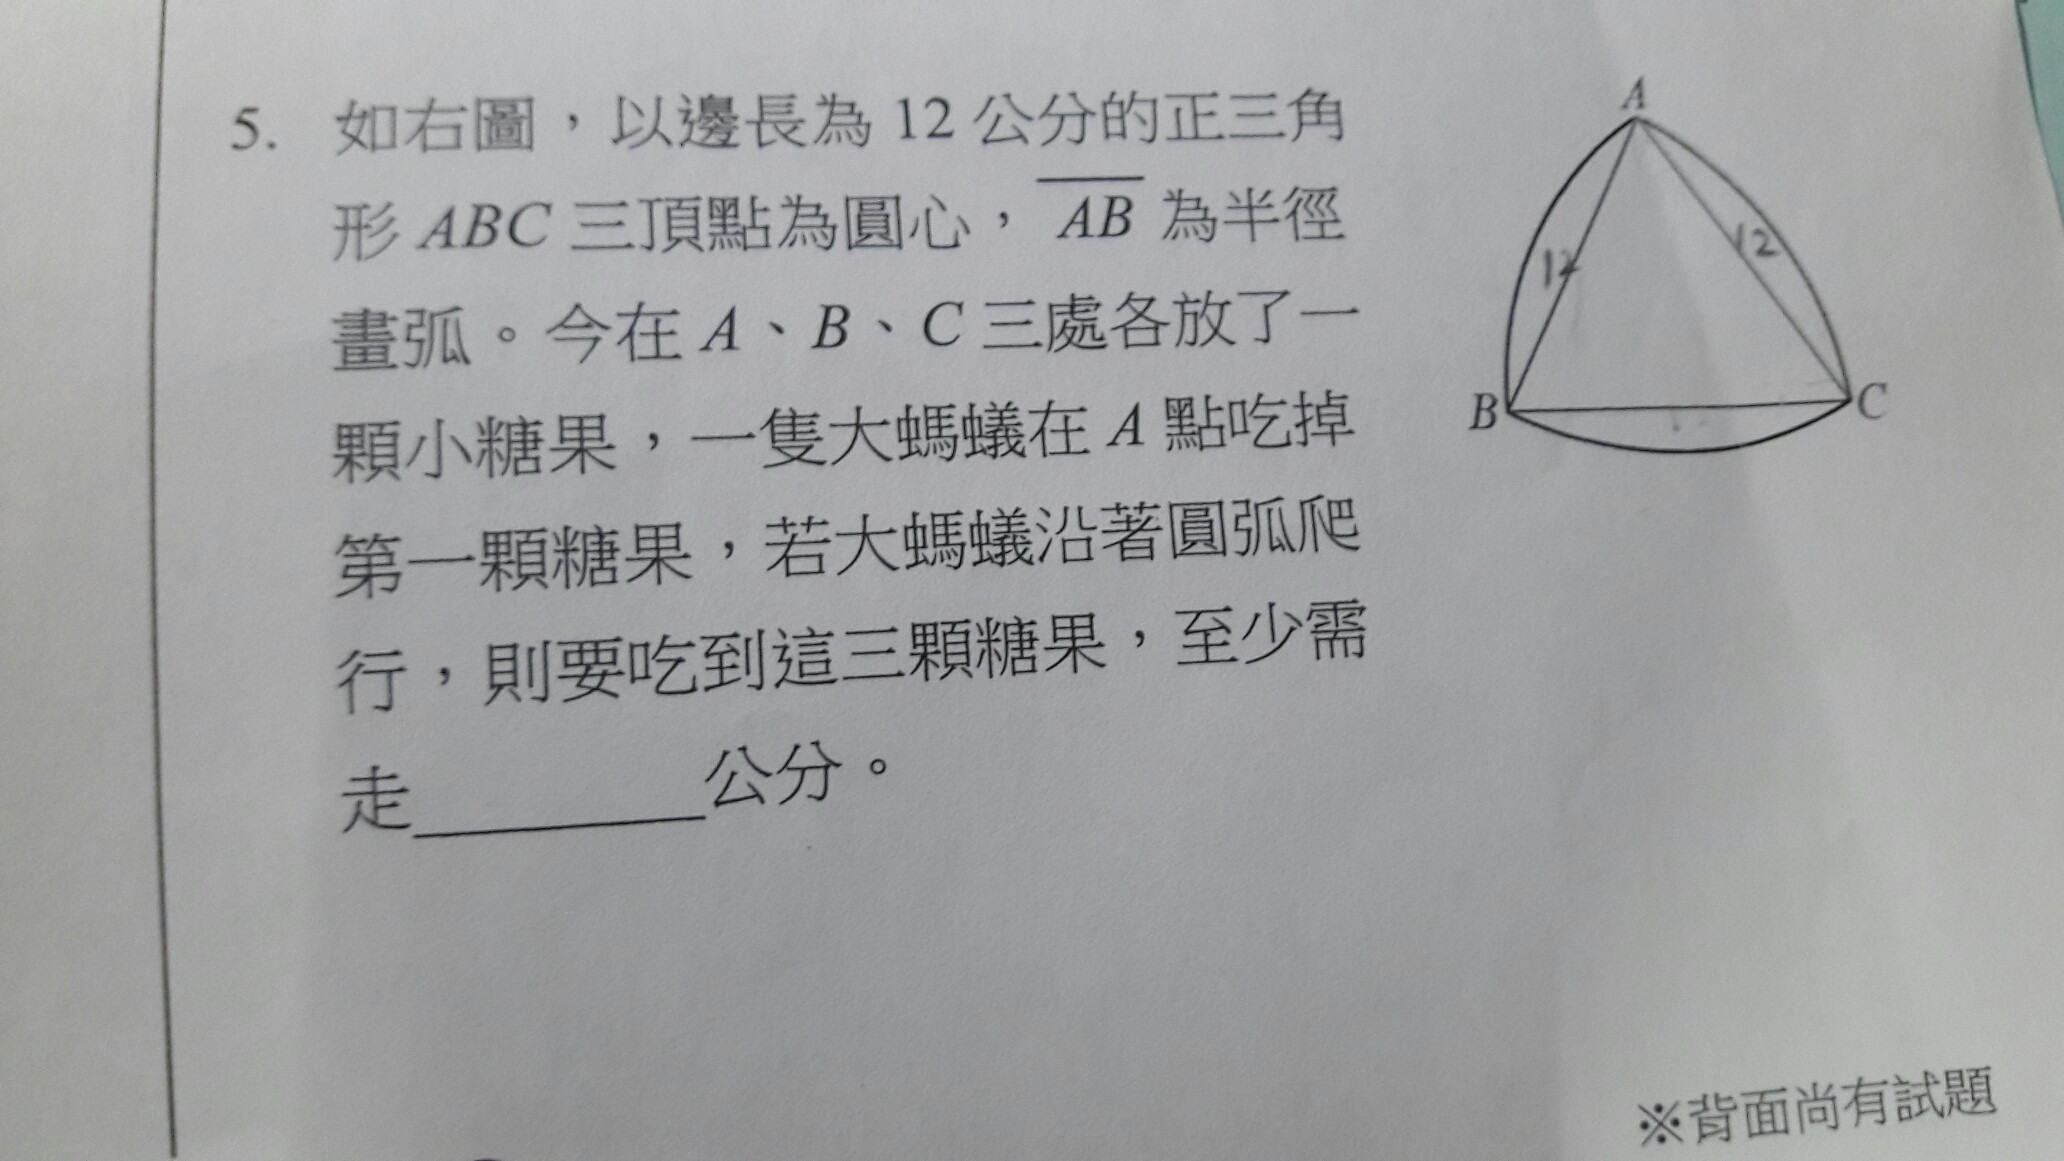 5. 如右圖，以邊長為 12 公分的正三角
形 ABC 三頂點為圓心，AB 為半徑
畫弧。今在 A、B、C 三處各放了一
顆小糖果，一隻大螞蟻在 A 點吃掉
第一顆糖果，若大螞蟻沿著圓弧爬
行，則要吃到這三顆糖果，至少需
走________公分。
A
12
12
B
C
※背面尚有試題